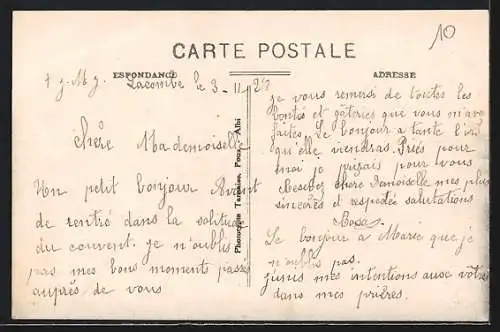 10
CARTE POSTALE
ESPONDANCE
ADRESSE
+ J. M. J.
Lacombe le 3-11-28
Chère Mademoiselle
Un petit bonjour Avant
de rentré dans la solitude
du couvent. je n'oublis
pas mes bons moments passés
auprès de vous
Phototypie Tarnaise, Poux, Albi
je vous remersi de toutes les
bontés et gâteries que vous m'ave
faites. Le bonjour a tante
qu'elle viendras. Priés pour
moi je prirais pour vous
Resebez chère Demoiselle mes plus
sincères et respedés salutations
Rosa
Le bonjour a Marse que je
n'oublis pas.
junis mes intentions ause vôtres
dans mes prières.